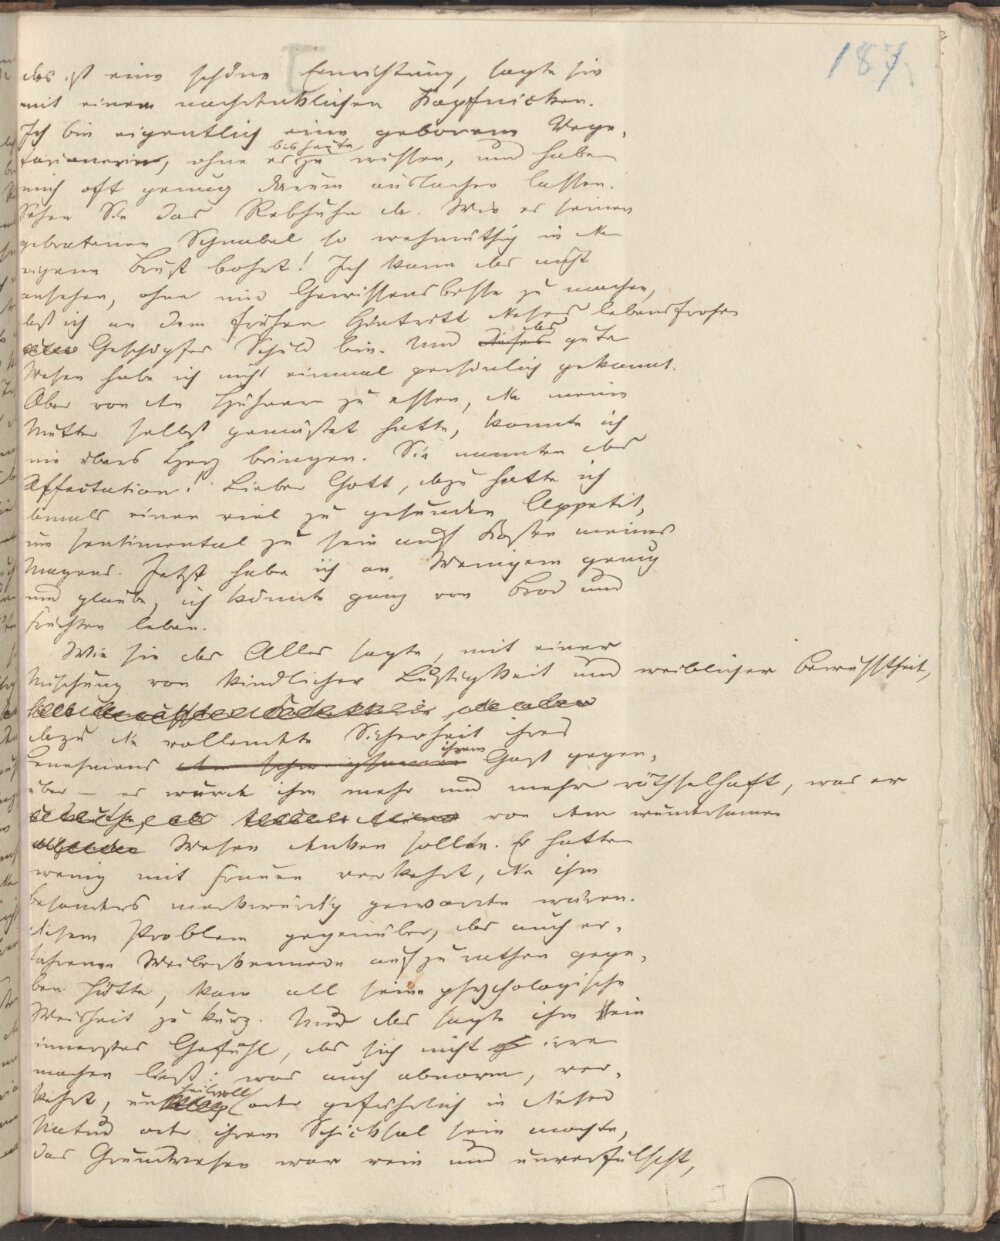 187
das ist eine schöne Einrichtung, sagte sie
mit einem nachdenklichen Kopfnicken.
Ich bin eigentlich eine geborene Vege-
tarianerin, ohne es bis heute zu wissen, und habe
mich oft genug darum auslachen lassen.
Sehen Sie das Rebhuhn da. Wie es seinen
gebratenen Schnabel so wehmüthig in die
eigene Brust bohrt! Ich kann das nicht
ansehen, ohne mir Gewissensbisse zu machen,
daß ich an dem frühen Hintritt dieses lebensfrohen
Geschöpfes Schuld bin. Und dieses das gute
Wesen habe ich nicht einmal persönlich gekannt.
Aber von den Hühnern zu essen, die meine
Mutter selbst gemästet hatte, konnte ich
nie übers Herz bringen. Sie nannten das
Affectation! Lieber Gott, dazu hatte ich
damals einen viel zu gesunden Appetit,
um sentimental zu sein auf Kosten meines
Magens. Jetzt habe ich an Wenigem genug
und glaube, ich könnte ganz von Brod und
Früchten leben.
Wie sie das Alles sagte, mit einer
Mischung von kindlicher Lustigkeit und weiblicher Bewußtheit,
dazu die vollendete Sicherheit ihres
Benehmens ihrem Gast gegen-
über – es wurde ihm mehr und mehr räthselhaft, was er
von dem wundersamen
Wesen denken sollte. Er hatte
wenig mit Frauen verkehrt, die ihm
besonders merkwürdig geworden wären.
diesem Problem gegenüber, das auch er-
fahrenen Weiberkennern aufzurathen gege-
ben hätte, kam all seine psychologische
Weisheit zu kurz. Nur das sagte ihm sein
innerstes Gefühl, das sich nicht irre
machen ließ: was auch abnorm, ver-
kehrt, unheilvoll oder gefährlich in dieser
Natur oder ihrem Schicksal sein mochte,
das Grundwesen war rein und unverfälscht,